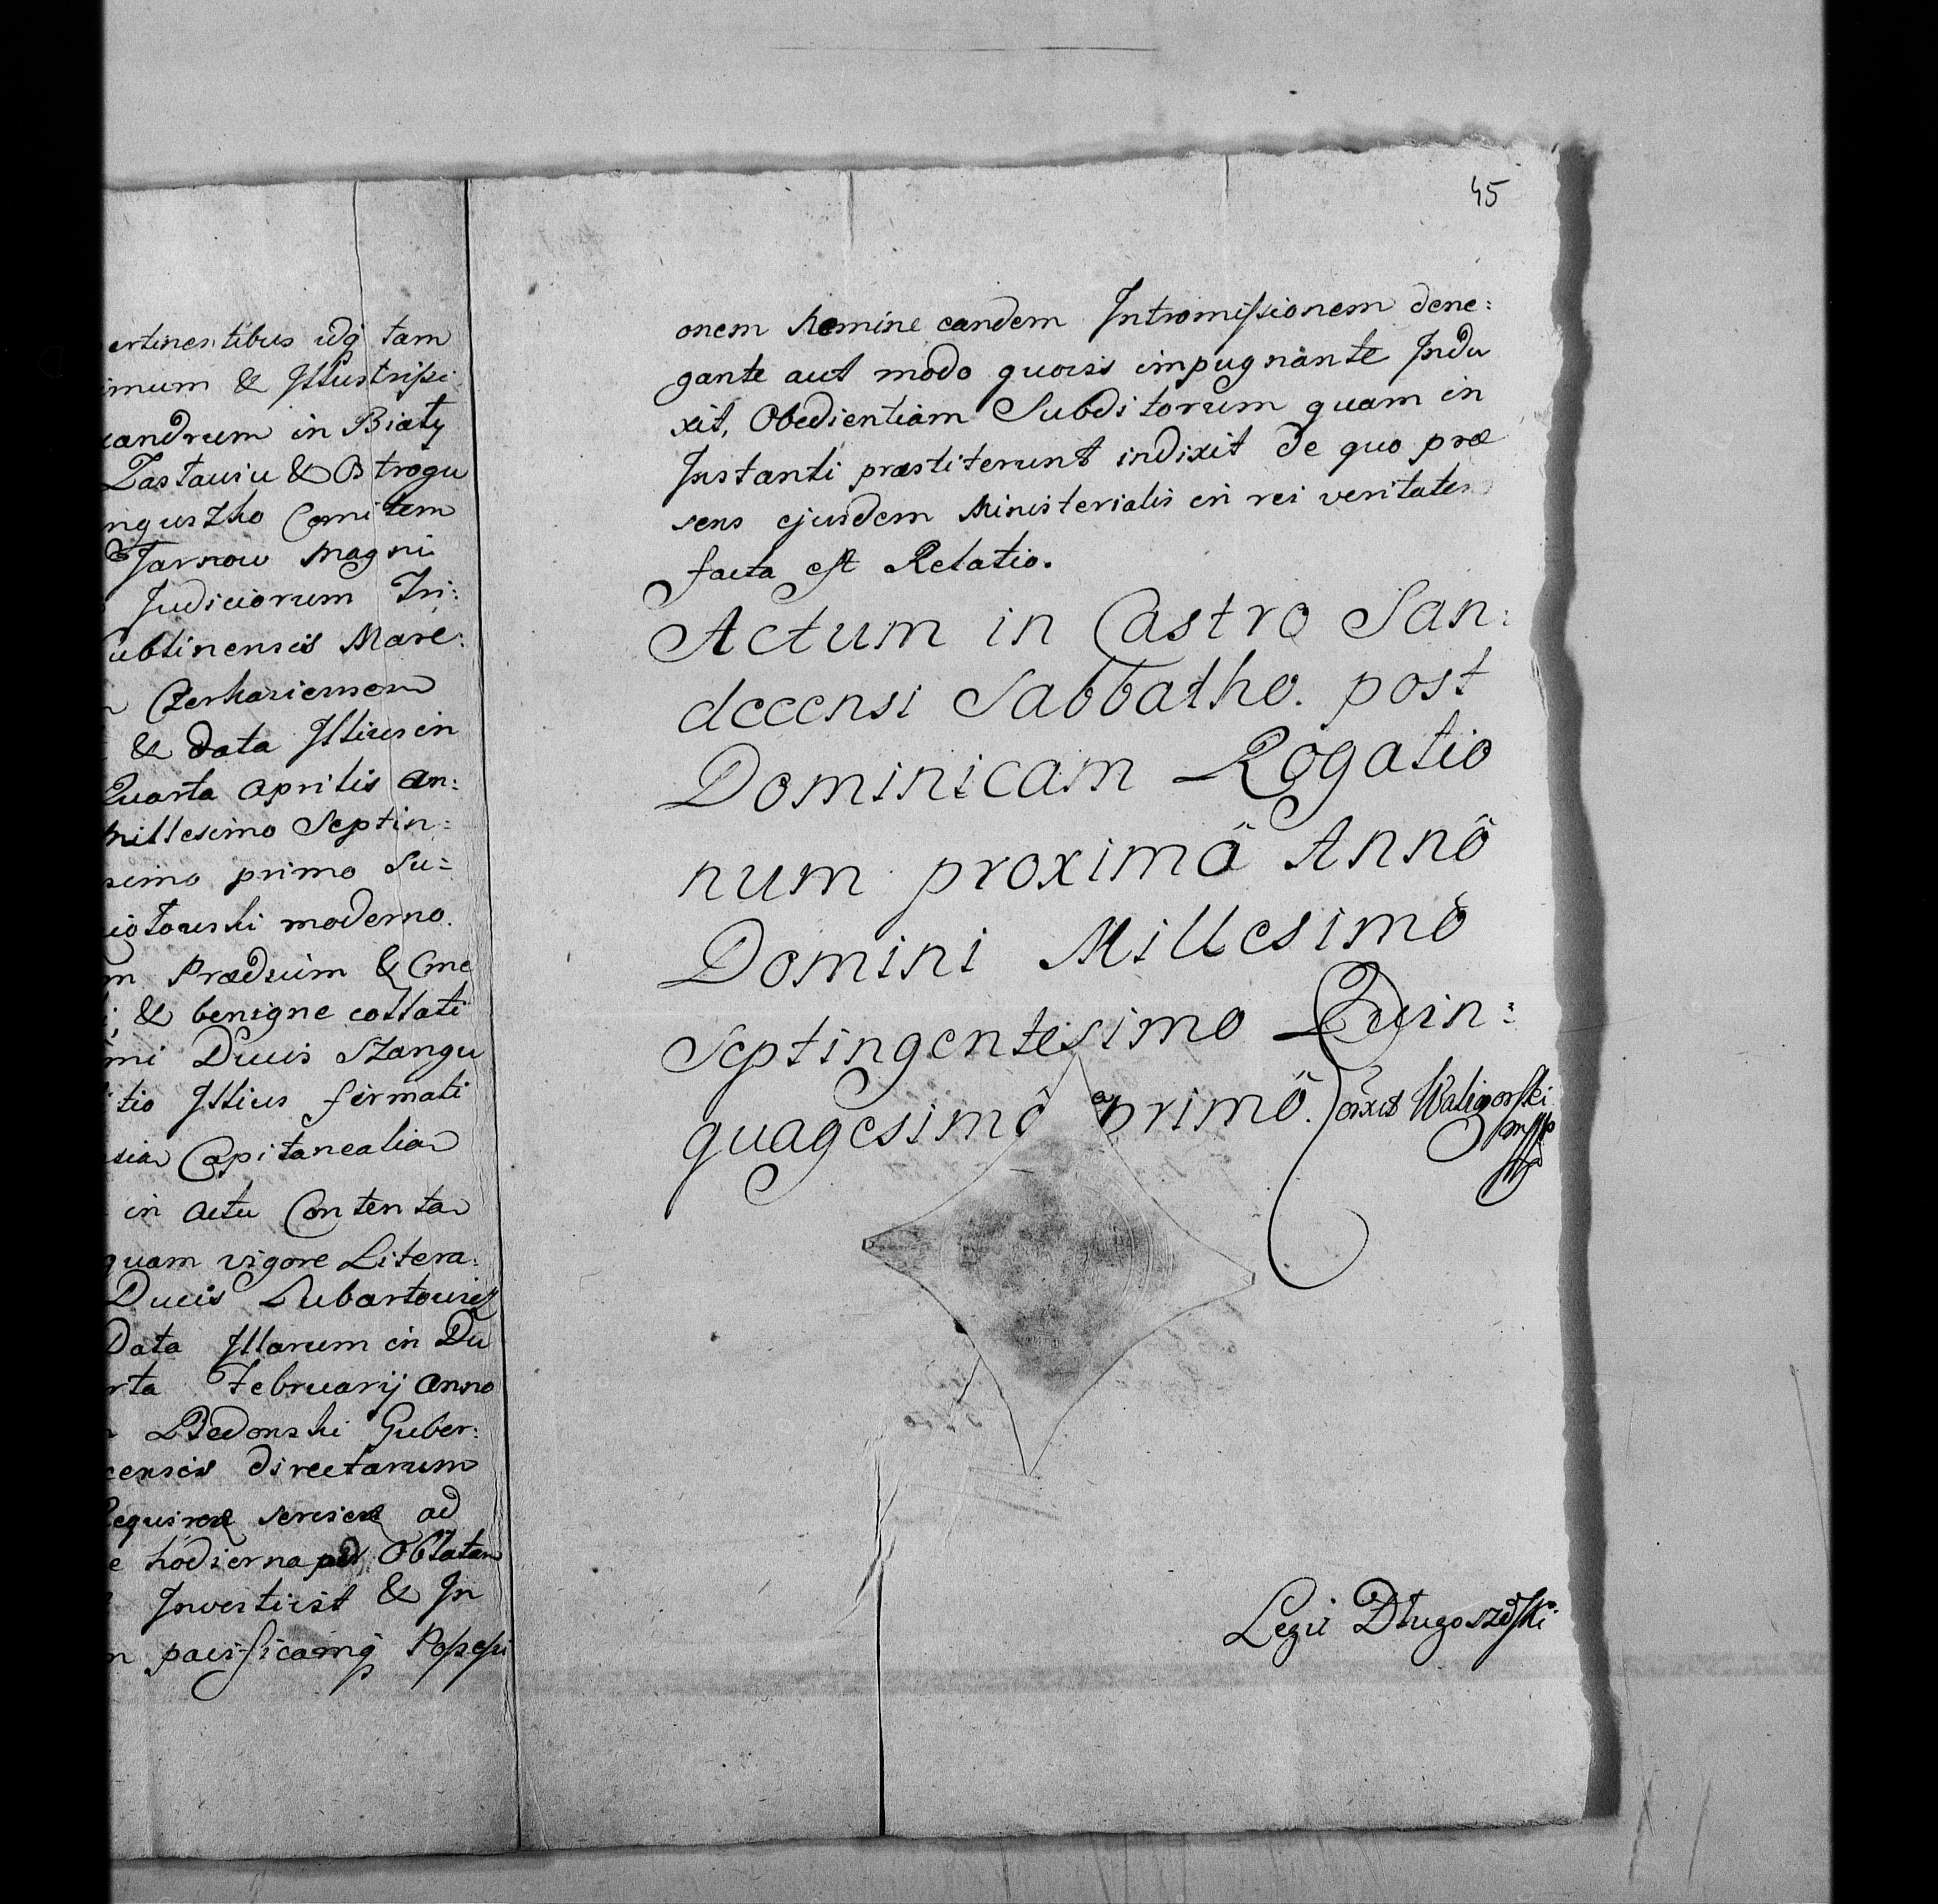 ertinentibus idq tam
imum & Illustrissi
xandrum in Biały
Zasławiu & Ostrogu
nguszko Comitem
Tarnow Magni
Judiciorum Tri:
ublinensis Mare:
Czerkasiensem
& data Illius in
Quarta Aprilis An:
Millesimo Septin:
simo primo Su=
iotowski moderno.
m Prædium & Cme
& benigne collati
mi Ducis Szangu
itio Illius firmati
sia Capitanealia
in actu Contenta
quam vigore Litera:
Ducis Lubartowie
Data Illarum in Du
rta Februarij Anno
Bedonski Guber:
censis directarum
Requiræ serisere ad
e hodierna per Oblatam
Investivit & In
m pacificamq Possessi
45
onem Nemine eandem Intromissionem dene:
gante aut modo quovis impugnante Indu
xit, Obedientiam Subditorum quam in
Instanti præstiterunt indixit de quo præ
sens ejusdem Ministerialis in rei veritatem
facta est Relatio.
Actum in Castro San:
deceensi Sabbatho. post
Dominicam Rogatio
num proximâ Annô
Domini Millesimô
Septingentesimo Quin:
quagesimô primô.
Waligorski
mpp
Legit Długoszewski